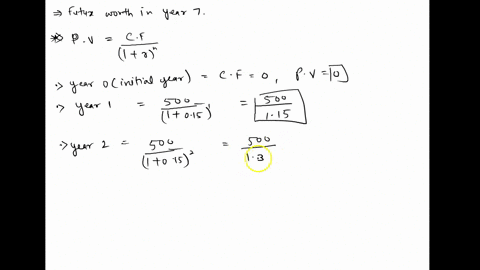 ⇒ Future worth in year 7.
※ P.V = C.F / (1+r)^n
⇒ year 0 (initial year) = C.F = 0, P.V = 0
⇒ year 1 = 500 / (1+0.15)^1 = 500 / 1.15
⇒ year 2 = 500 / (1+0.15)^2 = 500 / 1.3